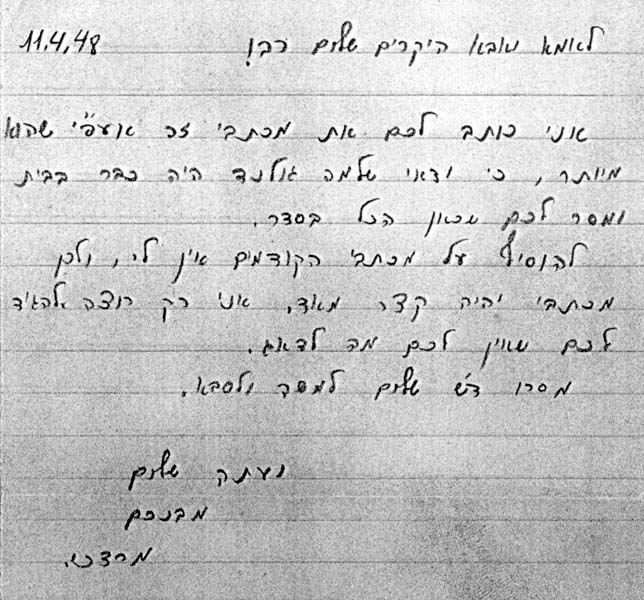 11.4.48
לאמא ואבא היקרים שלום רב!
אני כותב לכם את מכתבי זה אעפ"י שהוא
מיותר, כי ודאי שלמה גולנד היה כבר בבית
ומסר לכם שכאן הכל בסדר.
להוסיף על מכתבי הקודמים אין לי, ולכן
מכתבי יהיה קצר מאוד. אני רק רוצה להגיד
לכם שאין לכם מה לדאוג.
מסרו ד"ש שלום למשה ולסבא.
ועתה שלום
מבנכם
מרדכי.